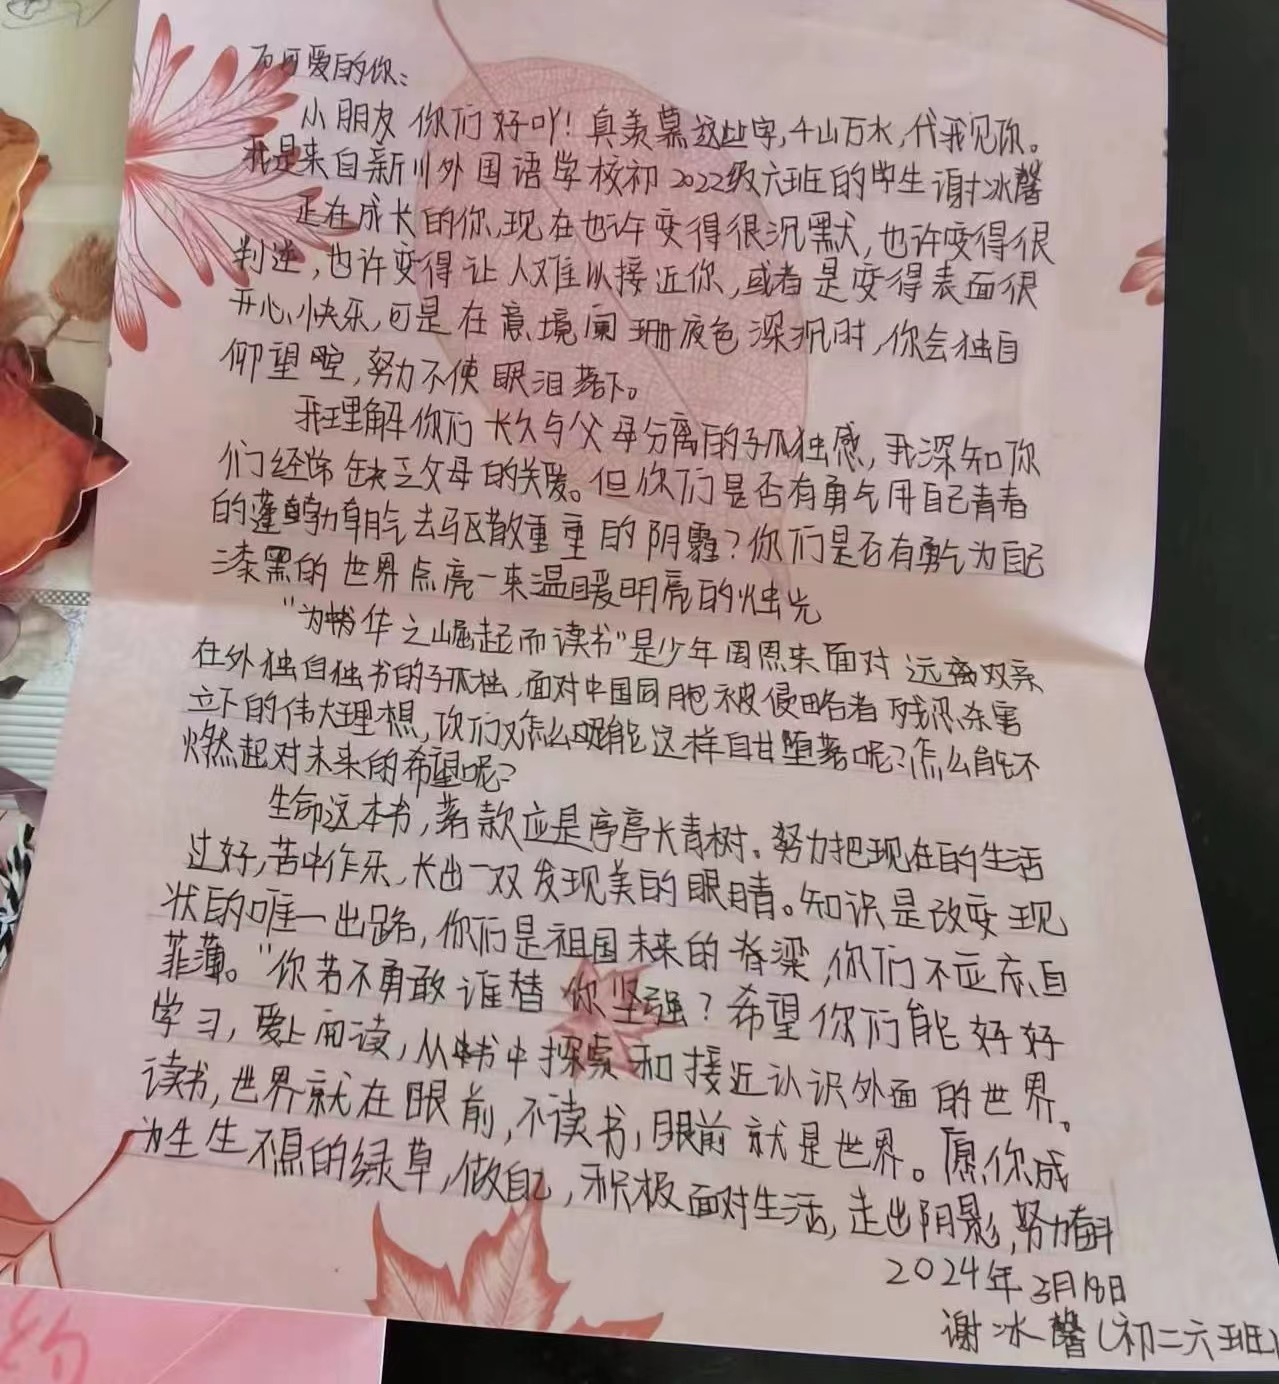 可爱的你:
小朋友 你们好吖!真羡慕这些字,千山万水,代我见你。
我是来自新川外国语学校初2022级六班的学生谢冰馨
正在成长的你,现在也许变得很沉默,也许变得很
判逆,也许变得让人难以接近你,或者是变得表面很
开心、快乐,可是在意境阑珊夜色深沉时,你会独自
仰望 ,努力不使眼泪落下。
我理解你们长久与父母分离的孤独感,我深知你
们经常缺乏父母的关爱。但你们是否有勇气用自己青春
的蓬勃朝气去驱散重重的阴霾?你们是否有勇气为自己
漆黑的世界点亮一束温暖明亮的烛光
"为中华之崛起而读书"是少年周恩来面对远离双亲
在外独自独书的孤独,面对中国同胞被侵略者残忍杀害
立下的伟大理想,你们又怎么能这样自甘堕落呢?怎么能不
燃起对未来的希望呢?
生命这本书,落款应是亭亭长青树。努力把现在的生活
过好,苦中作乐,长出一双发现美的眼睛。知识是改变现
状的唯一出路,你们是祖国未来的脊梁,你们不应妄自
菲薄。"你若不勇敢谁替你坚强?希望你们能好好
学习,爱上阅读,从书中探索和接近认识外面的世界。
读书,世界就在眼前,不读书,眼前就是世界。愿你成
为生生不息的绿草,做自己,积极面对生活,走出阴影,努力奋斗
2024年3月18日
谢冰馨(初二六班)
约